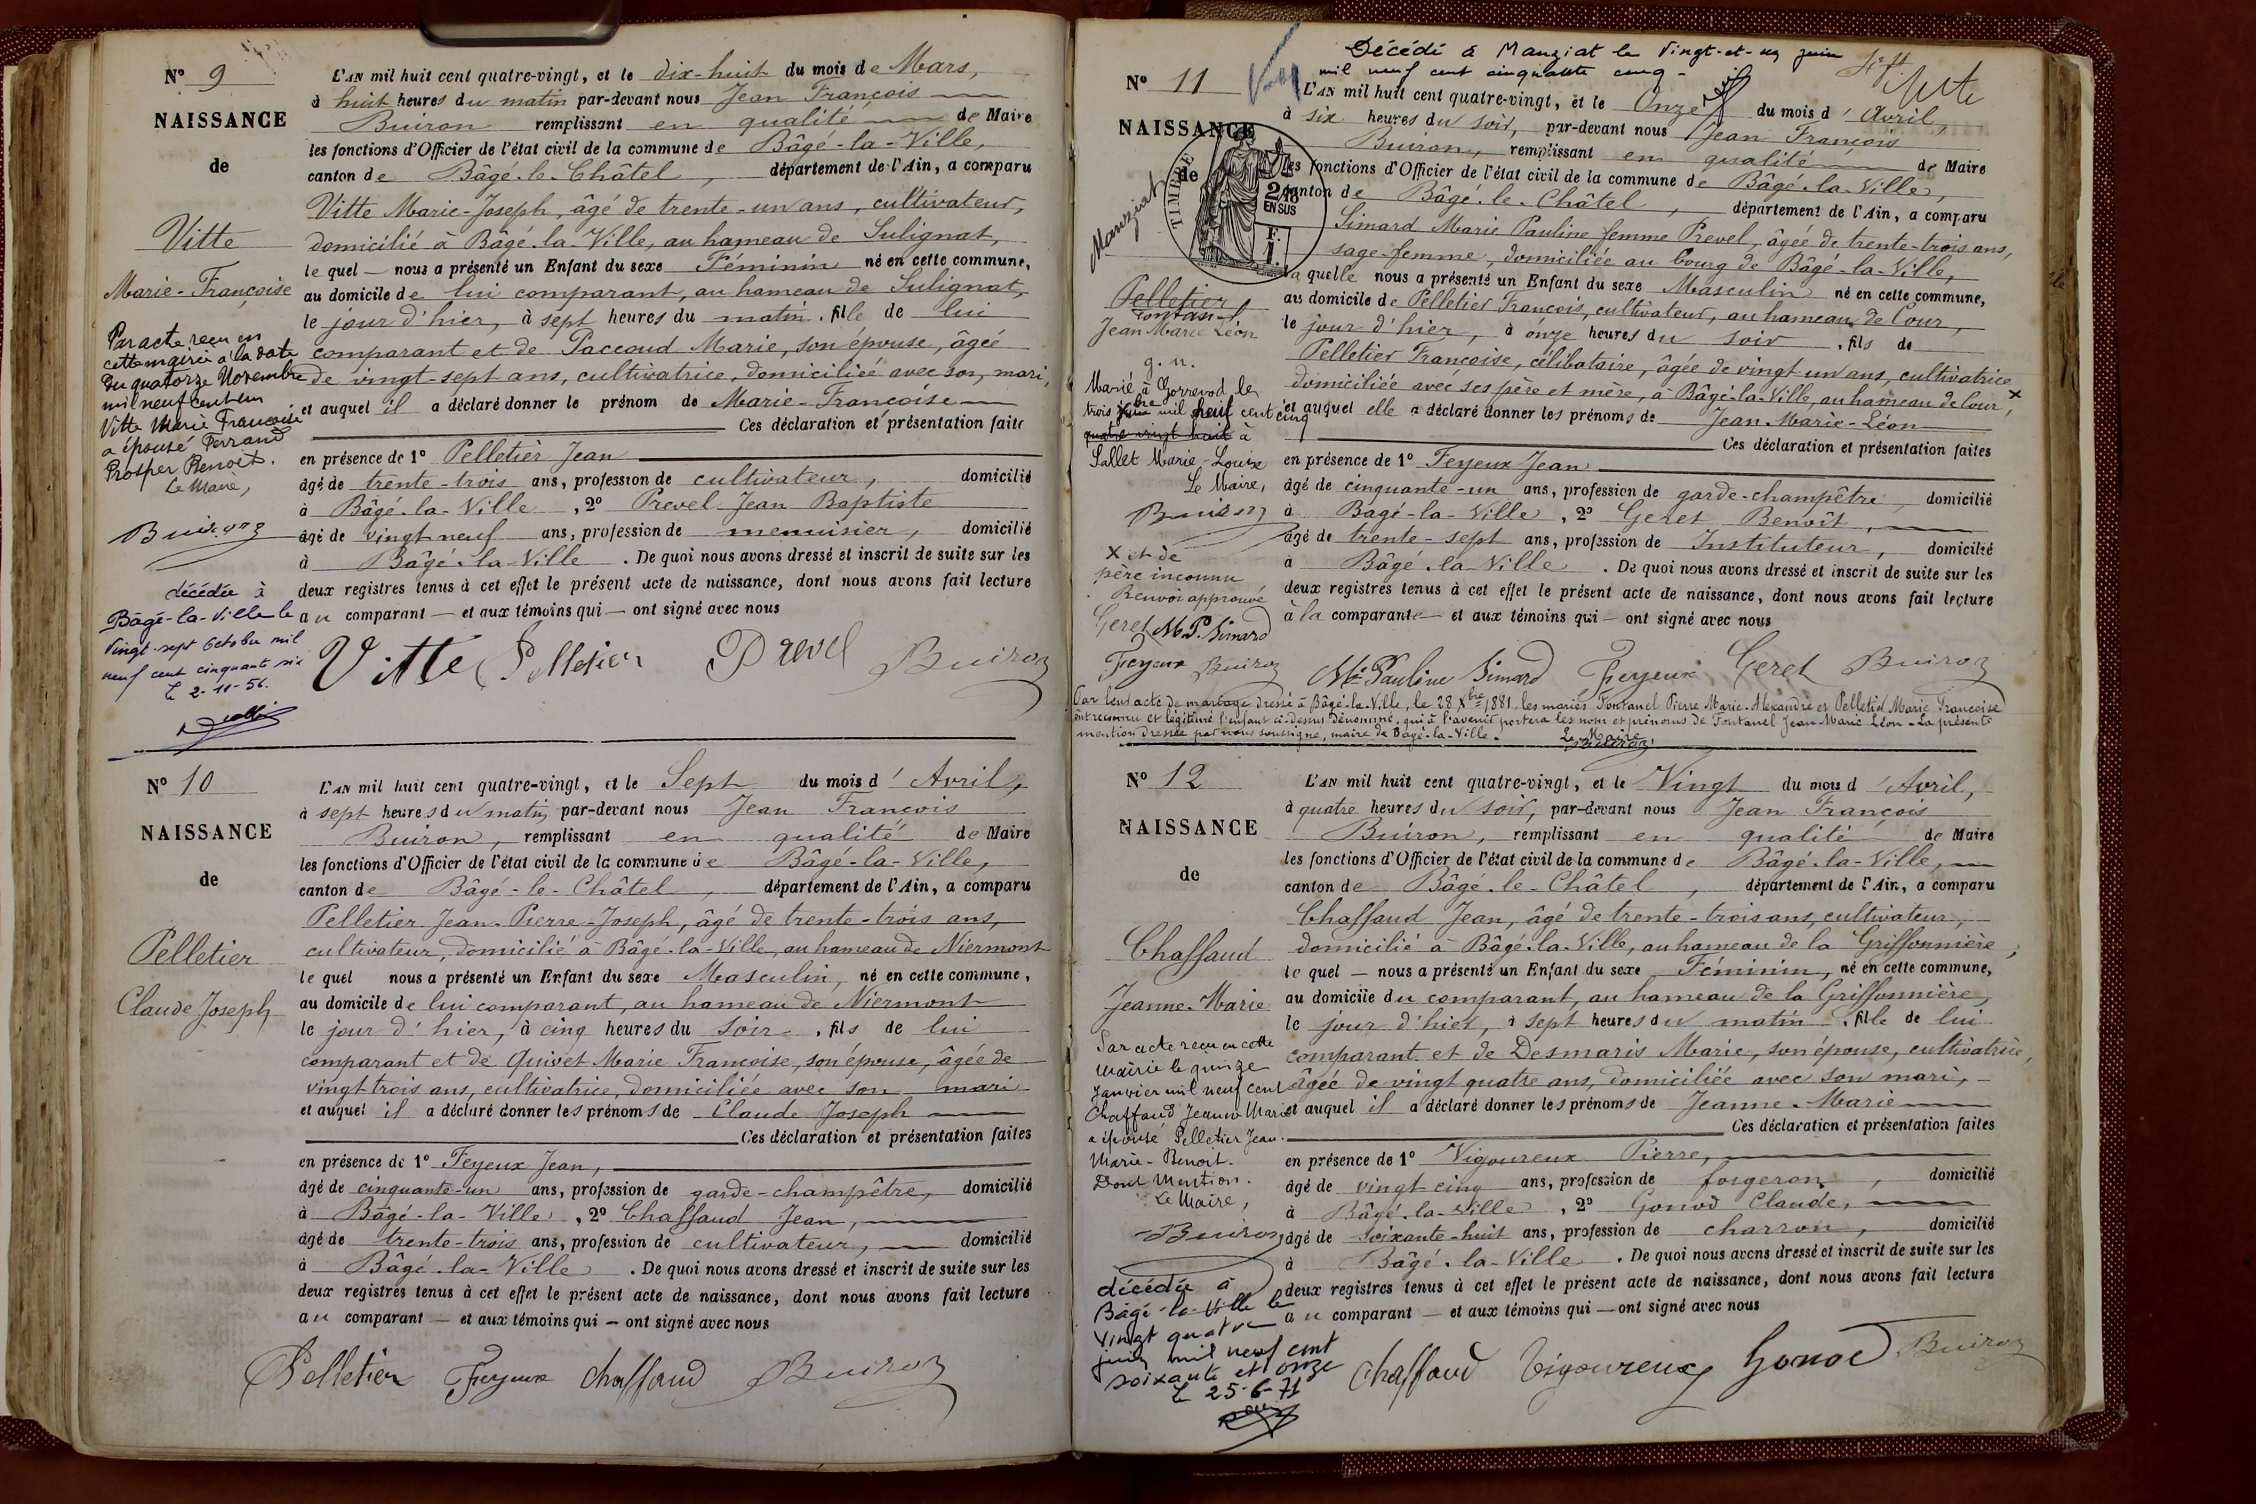 N° 9
NAISSANCE
de
Vitte
Marie-Françoise
Par acte reçu en
cette mairie à la date
du quatorze Novembre
mil neuf cent un
Vitte Marie Françoise
a épousé Ferrand
Prosper Benoit.
Le Maire,
Buiron
décédée à
Bâgé-la-Ville le
vingt-sept Octobre mil
neuf cent cinquante six
L 2-11-56.
L'AN mil huit cent quatre-vingt, et le dix-huit du mois de Mars,
à huit heures du matin par-devant nous Jean François
Buiron remplissant en qualité de Maire
les fonctions d'Officier de l'état civil de la commune de Bâgé-la-Ville,
canton de Bâgé-le-Châtel, département de l'Ain, a comparu
Vitte Marie-Joseph, âgé de trente-un ans, cultivateur,
domicilié à Bâgé-la-Ville, au hameau de Sulignat,
le quel — nous a présenté un Enfant du sexe Féminin né en cette commune,
au domicile de lui comparant, au hameau de Sulignat,
le jour d'hier, à sept heures du matin. fille de lui
comparant et de Paccoud Marie, son épouse, âgée
de vingt-sept ans, cultivatrice, domiciliée avec son mari,
et auquel il a déclaré donner le prénom de Marie-Françoise
Ces déclaration et présentation faite
en présence de 1° Pelletier Jean
âgé de trente-trois ans, profession de cultivateur, domicilié
à Bâgé-la-Ville, 2° Prevel Jean Baptiste
âgé de vingt neuf ans, profession de menuisier, domicilié
à Bâgé-la-Ville. De quoi nous avons dressé et inscrit de suite sur les
deux registres tenus à cet effet le présent acte de naissance, dont nous avons fait lecture
au comparant — et aux témoins qui — ont signé avec nous
Vitte Pelletier Prevel Buiron
N° 10
NAISSANCE
de
Pelletier
Claude Joseph
L'AN mil huit cent quatre-vingt, et le Sept du mois d'Avril,
à sept heures du matin, par-devant nous Jean François
Buiron, remplissant en qualité de Maire
les fonctions d'Officier de l'état civil de la commune de Bâgé-la-Ville,
canton de Bâgé-le-Châtel, département de l'Ain, a comparu
Pelletier Jean-Pierre-Joseph, âgé de trente-trois ans,
cultivateur, domicilié à Bâgé-la-Ville, au hameau de Niermont
le quel nous a présenté un Enfant du sexe Masculin, né en cette commune,
au domicile de lui comparant, au hameau de Niermont
le jour d'hier, à cinq heures du soir. fils de lui
comparant et de Quivet Marie Françoise, son épouse, âgée de
vingt trois ans, cultivatrice, domiciliée avec son mari
et auquel il a déclaré donner les prénoms de Claude Joseph
Ces déclaration et présentation faites
en présence de 1° Feyeux Jean,
âgé de cinquante-un ans, profession de garde-champêtre, domicilié
à Bâgé-la-Ville, 2° Chaffaud Jean,
âgé de trente-trois ans, profession de cultivateur, domicilié
à Bâgé-la-Ville. De quoi nous avons dressé et inscrit de suite sur les
deux registres tenus à cet effet le présent acte de naissance, dont nous avons fait lecture
au comparant — et aux témoins qui — ont signé avec nous
Pelletier Feyeux Chaffaud Buiron
Décédé à Manziat le Vingt-et-un juin
mil neuf cent cinquante cinq -
N° 11
NAISSANCE
de
TIMBRE
2/10
EN SUS
F.
1.
Manziat
Pelletier
Fontanel
Jean Marie Léon
g. n.
Marié à Gorrevod le
trois mil neuf cent cinq
quatre vingt huit à
Sallet Marie-Louise
Le Maire,
Buiron
X et de
père inconnu
Renvoi approuvé
Geret M.P. Simard
Feyeux Buiron
L'AN mil huit cent quatre-vingt, et le Onze du mois d'Avril,
à six heures du soir, par-devant nous Jean François
Buiron, remplissant en qualité de Maire
les fonctions d'Officier de l'état civil de la commune de Bâgé-la-Ville,
canton de Bâgé-le-Châtel, département de l'Ain, a comparu
Simard Marie Pauline femme Prevel, âgée de trente-trois ans,
sage-femme, domiciliée au bourg de Bâgé-la-Ville,
la quelle nous a présenté un Enfant du sexe Masculin né en cette commune,
au domicile de Pelletier François, cultivateur, au hameau de Cour,
le jour d'hier, à onze heures du soir. fils de
Pelletier Françoise, célibataire, âgée de vingt un ans, cultivatrice
domiciliée avec ses père et mère, à Bâgé-la-Ville, au hameau de Cour, X
et auquel elle a déclaré donner les prénoms de Jean Marie-Léon
Ces déclaration et présentation faites
en présence de 1° Feyeux Jean
âgé de cinquante-un ans, profession de garde-champêtre, domicilié
à Bagé-la-Ville, 2° Geret Benoît,
âgé de trente-sept ans, profession de Instituteur, domicilié
à Bâgé-la-Ville. De quoi nous avons dressé et inscrit de suite sur les
deux registres tenus à cet effet le présent acte de naissance, dont nous avons fait lecture
à la comparante — et aux témoins qui — ont signé avec nous
Mie Pauline Simard Feyeux Geret Buiron
Par leur acte de mariage dressé à Bâgé-la-Ville, le 28 Xbre 1881, les mariés Fontanel Pierre Marie-Alexandre et Pelletier Marie Françoise
ont reconnu et légitimé l'enfant ci-dessus dénommé, qui à l'avenir portera les nom et prénoms de Fontanel Jean-Marie Léon - La présente
mention dressée par nous soussigné, maire de Bâgé-la-Ville.
Le Maire
Buiron
N° 12
NAISSANCE
de
Chaffaud
Jeanne-Marie
Par acte reçu en cette
mairie le quinze
Janvier mil neuf cent
Chaffaud Jeanne Marie
a épousé Pelletier Jean-
Marie-Benoit.
Dont Mention.
Le Maire,
Buiron
décédée à
Bâgé-la-Ville le
vingt quatre
juin mil neuf cent
soixante et onze
L 25-6-71
L'AN mil huit cent quatre-vingt, et le Vingt du mois d'Avril,
à quatre heures du soir, par-devant nous Jean François
Buiron, remplissant en qualité de Maire
les fonctions d'Officier de l'état civil de la commune de Bâgé-la-Ville,
canton de Bâgé-le-Châtel, département de l'Ain, a comparu
Chaffaud Jean, âgé de trente-trois ans, cultivateur,
domicilié à Bâgé-la-Ville, au hameau de la Griffonnière,
le quel — nous a présenté un Enfant du sexe Féminin, né en cette commune,
au domicile du comparant, au hameau de la Griffonnière,
le jour d'hier, à sept heures du matin. fille de lui
comparant et de Desmaris Marie, son épouse, cultivatrice,
âgée de vingt quatre ans, domiciliée avec son mari,
et auquel il a déclaré donner les prénoms de Jeanne-Marie
Ces déclaration et présentation faites
en présence de 1° Vigoureux Pierre,
âgé de vingt-cinq ans, profession de forgeron, domicilié
à Bâgé-la-Ville, 2° Gonod Claude,
âgé de soixante-huit ans, profession de charron, domicilié
à Bâgé-la-Ville. De quoi nous avons dressé et inscrit de suite sur les
deux registres tenus à cet effet le présent acte de naissance, dont nous avons fait lecture
au comparant — et aux témoins qui — ont signé avec nous
Chaffaud Vigoureux Gonod Buiron